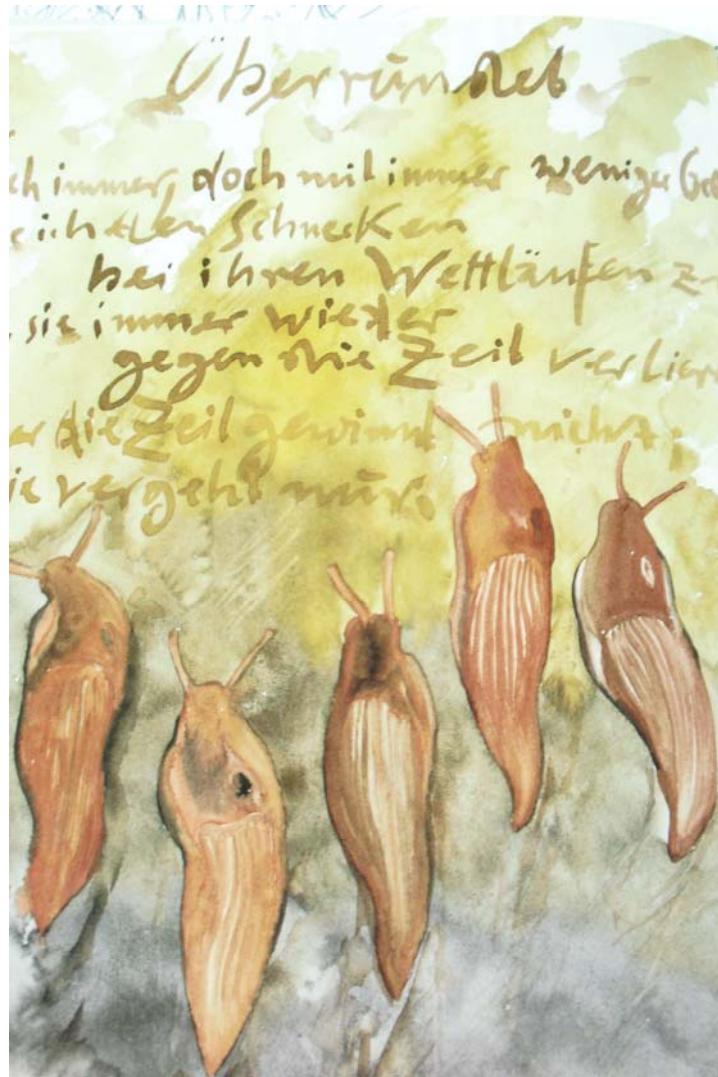 Überrundet
ch immer, doch mit immer weniger Ge
e ich den Schnecken
bei ihren Wettläufen z
sie immer wieder
gegen die Zeit verlier
er die Zeit gewinnt nicht;
ie vergeht nur.